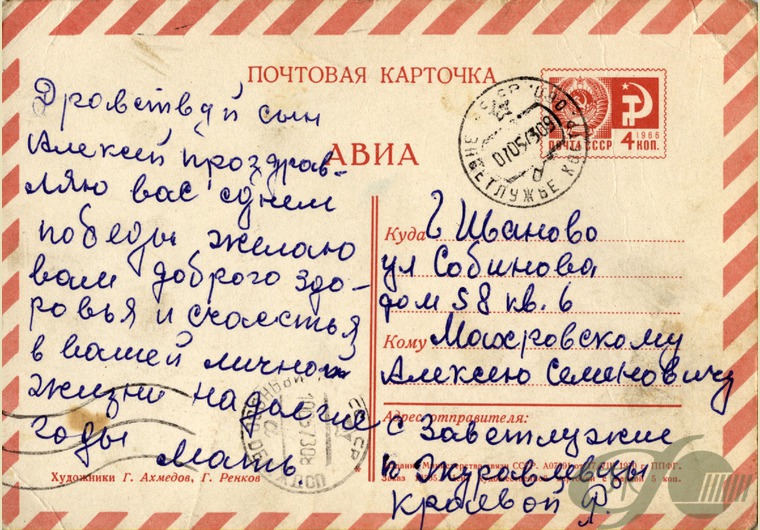 ПОЧТОВАЯ КАРТОЧКА
АВИА
1966
ПОЧТА СССР 4 КОП.
Дравствуй сын
Алексей проздрав-
ляю вас сднем
победы желаю
вам доброго здо-
ровья и счастья
в вашей личной
жизни на долгие
годы Мать
Куда г Иваново
ул Собинова
дом 58 кв. 6
Кому Махровскому
Алексею Семеновичу
Адрес отправителя:
с Заветлужие
Краевой Р.
Художники Г. Ахмедов, Г. Ренков